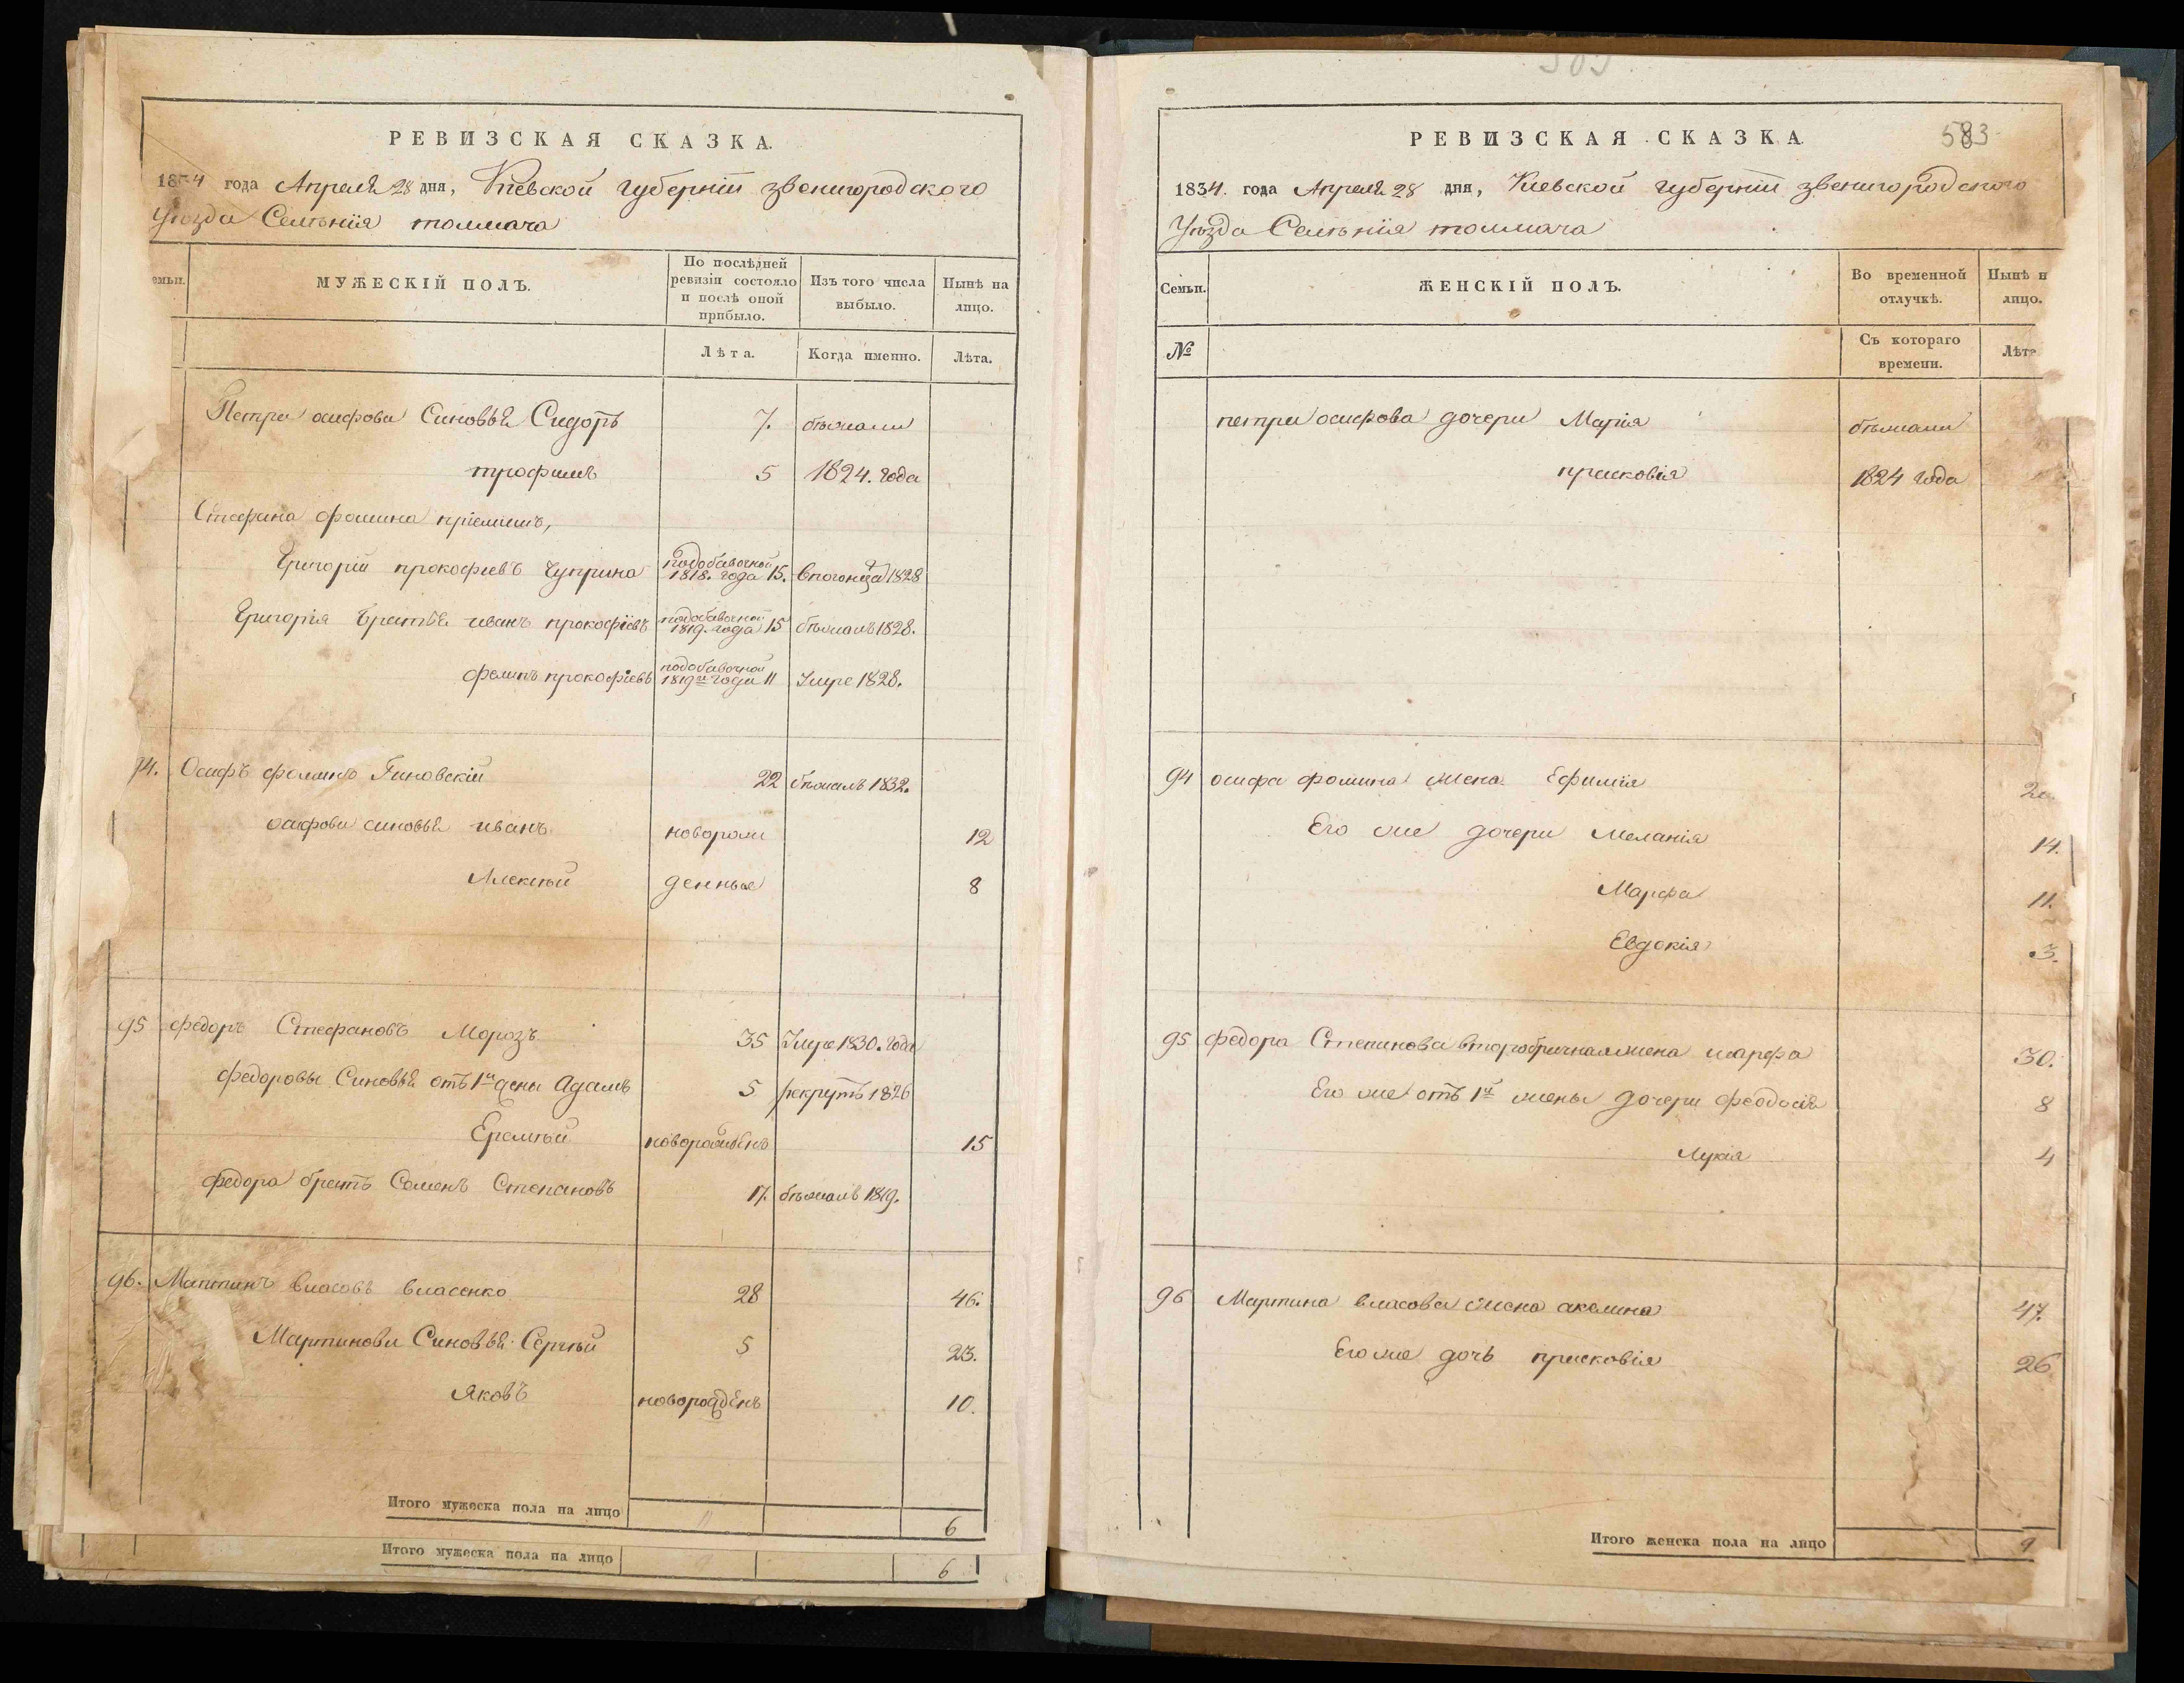 РЕВИЗСКАЯ СКАЗКА.
1834 года Апреля 28 дня, Киевской губернiи звенигородского
Уѣзда Селѣнiя толмача
МУЖЕСКIЙ ПОЛЪ.
По послѣдней ревизiи состояло и послѣ оной прибыло.
Изъ того числа выбыло.
Нынѣ на лицо.
Лѣта.
Когда именно.
Лѣта.
Петра осифова Синовья Сидоръ 7. бѣжали
трофимъ 5 1824. года
Стефана фомина прiемишъ,
Григорiй прокофiевъ Чуприна подобавочной 1818. года 15. 1828
Григорiя Братья иванъ прокофiевъ подобавочной 1819. года 15 бѣжалъ 1828.
прокофiевъ подобавочной 1819го года 11 Умре 1828.
94. Осифъ фоминъ 22 бѣжалъ 1832.
осифови синовья иванъ новорож 12
Алексѣй денные 8
95 федоръ Стефановъ Морозъ 35 Умре 1830. года
федоровы Синовья отъ 1й жены Адамъ 5 рекрутъ 1826
Еремѣй новорожденъ 15
федора братъ Семенъ Степановъ 17. бѣжалъ 1819.
96. власовъ власенко 28 46.
Мартинови Синовья Сергѣй 5 23.
Яковъ новорожденъ 10.
Итого мужеска пола на лицо 6
Итого мужеска пола на лицо 6
583
РЕВИЗСКАЯ СКАЗКА.
1834. года Апреля 28 дня, Киевской губернiи звенигородского
Уѣзда Селѣнiя толмача
Семьи.
ЖЕНСКIЙ ПОЛЪ.
Во временной отлучкѣ.
Нынѣ н
лицо.
№
Съ котораго времени.
Лѣта
петра осифова дочери Марiя бѣжали
прасковiя 1824 года
94 осифа фомина жена Ефимiя
Его же дочери Меланiя 14.
Марфа 11.
Евдокiя 3.
95 федора Степанова второбрачная жена марфа 30.
Его же отъ 1й жены дочери феодосiя 8
4
96 Мартина власова жена акелина 47.
Его же дочь прасковiя 26
Итого женска пола на лицо 9